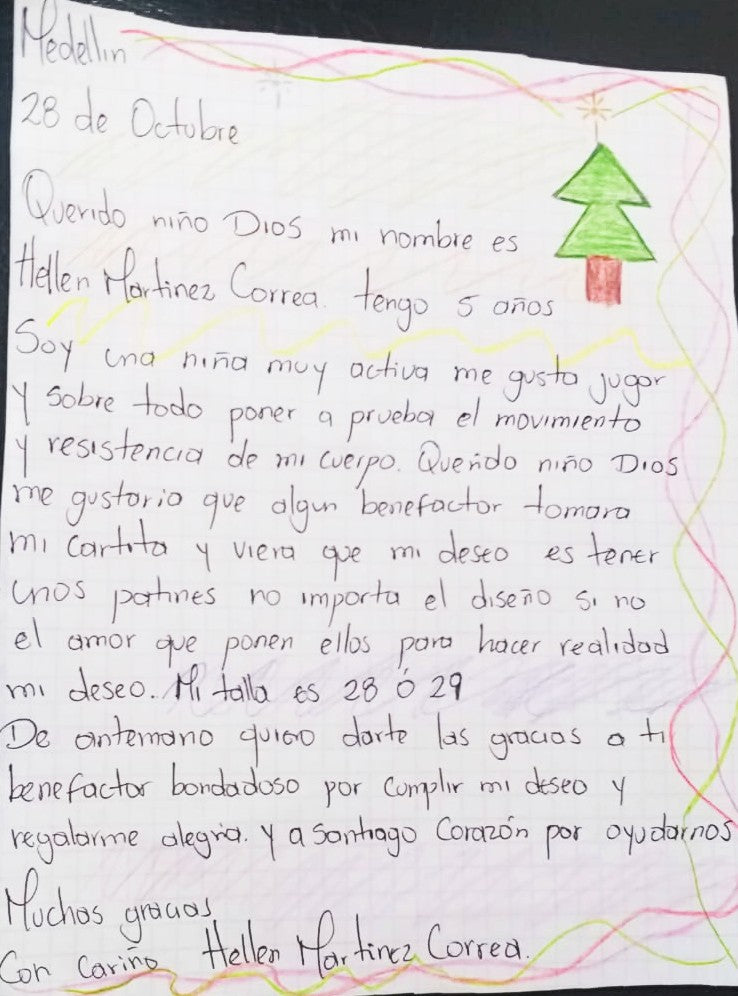 Medellin
28 de Octubre
Querido niño Dios mi nombre es
Hellen Martinez Correa. tengo 5 años
Soy una niña muy activa me gusta jugar
y sobre todo poner a prueba el movimiento
y resistencia de mi cuerpo. Querido niño Dios
me gustaria que algun benefactor tomara
mi cartita y viera que mi deseo es tener
unos patines no importa el diseño si no
el amor que ponen ellos para hacer realidad
mi deseo. Mi talla es 28 ó 29
De antemano quiero darte las gracias a ti
benefactor bondadoso por cumplir mi deseo y
regalarme alegria. y a Santiago Corazón por ayudarnos
Muchas gracias
Con cariño Hellen Martinez Correa.